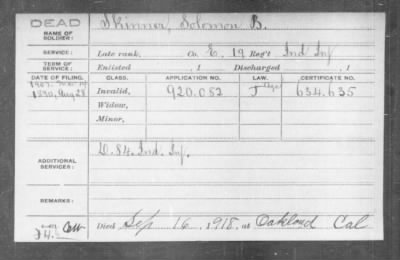 DEAD
NAME OF SOLDIER: Skinner, Solomon B.
SERVICE: Late rank, Co. E, 19 Reg't Ind Inf
TERM OF SERVICE: Enlisted , 1 Discharged , 1
DATE OF FILING. CLASS. APPLICATION NO. LAW. CERTIFICATE NO.
1890, Aug 28 Invalid, 920.082 J 634.635
Widow,
Minor,
ADDITIONAL SERVICES: D. 84. Ind. Inf.
REMARKS:
Died Sep 16, 1918, at Oakland Cal